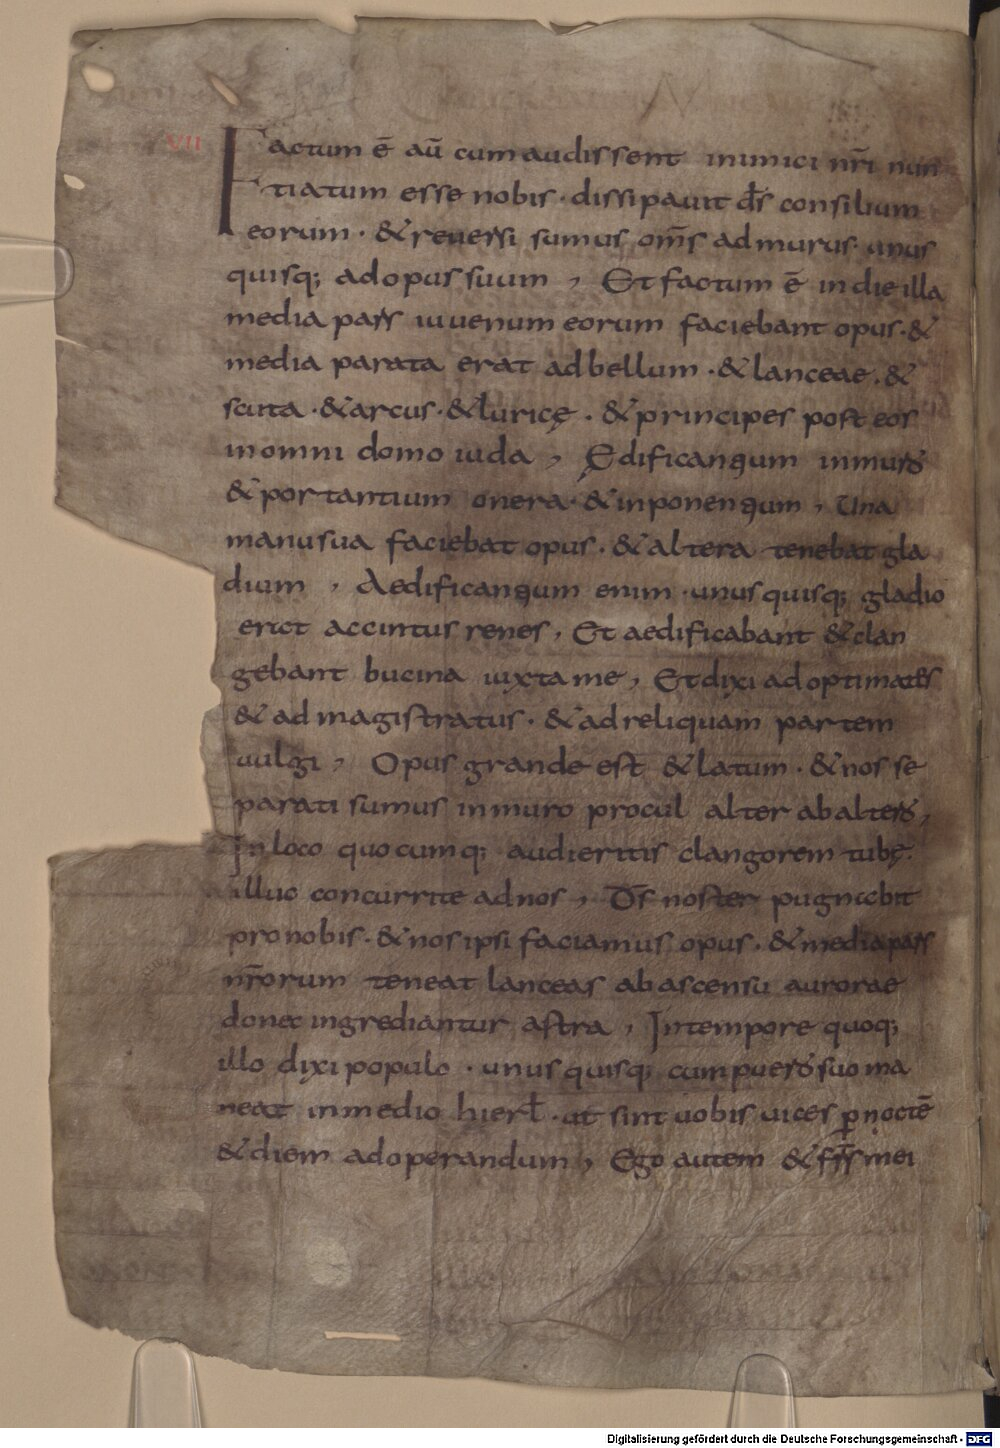 VII Factum ē aū cum audissent inimici nr̄i nun
tiatum esse nobis · dissipauit d̄s consilium
eorum · & reuersi sumus om̄s ad murus · unus
quisq; ad opus suum , Et factum ē in die illa
media pars iuuenum eorum faciebant opus · &
media parata erat ad bellum · & lanceae · &
scuta · & arcus · & luricę · & principes post eos
in omni domo iuda , Ędificantium in muro
& portantium onera · & inponentium , Una
manu sua faciebat opus · & altera tenebat gla
dium , Aedificantium enim · unus quisq; gladio
erat accintus renes , Et aedificabant & clan
gebant bucina iuxta me , Et dixi ad optimates
& ad magistratus · & ad reliquam partem
uulgi , Opus grande est & latum · & nos se
parati sumus in muro procul alter ab altero ,
In loco quo cumq; audieritis clangorem tubę ·
illuc concurrite ad nos , D̄s noster pugnabit
pro nobis · & nos ipsi faciamus opus · & media pars
nr̄orum teneat lanceas ab ascensu aurorae
donec ingrediantur astra , In tempore quoq;
illo dixi populo · unus quisq; cum puero suo ma
neat in medio hierł · ut sint uobis uices p̱ noctē
& diem ad operandum , Ego autem & fr̄s mei
Digitalisierung gefördert durch die Deutsche Forschungsgemeinschaft - DFG